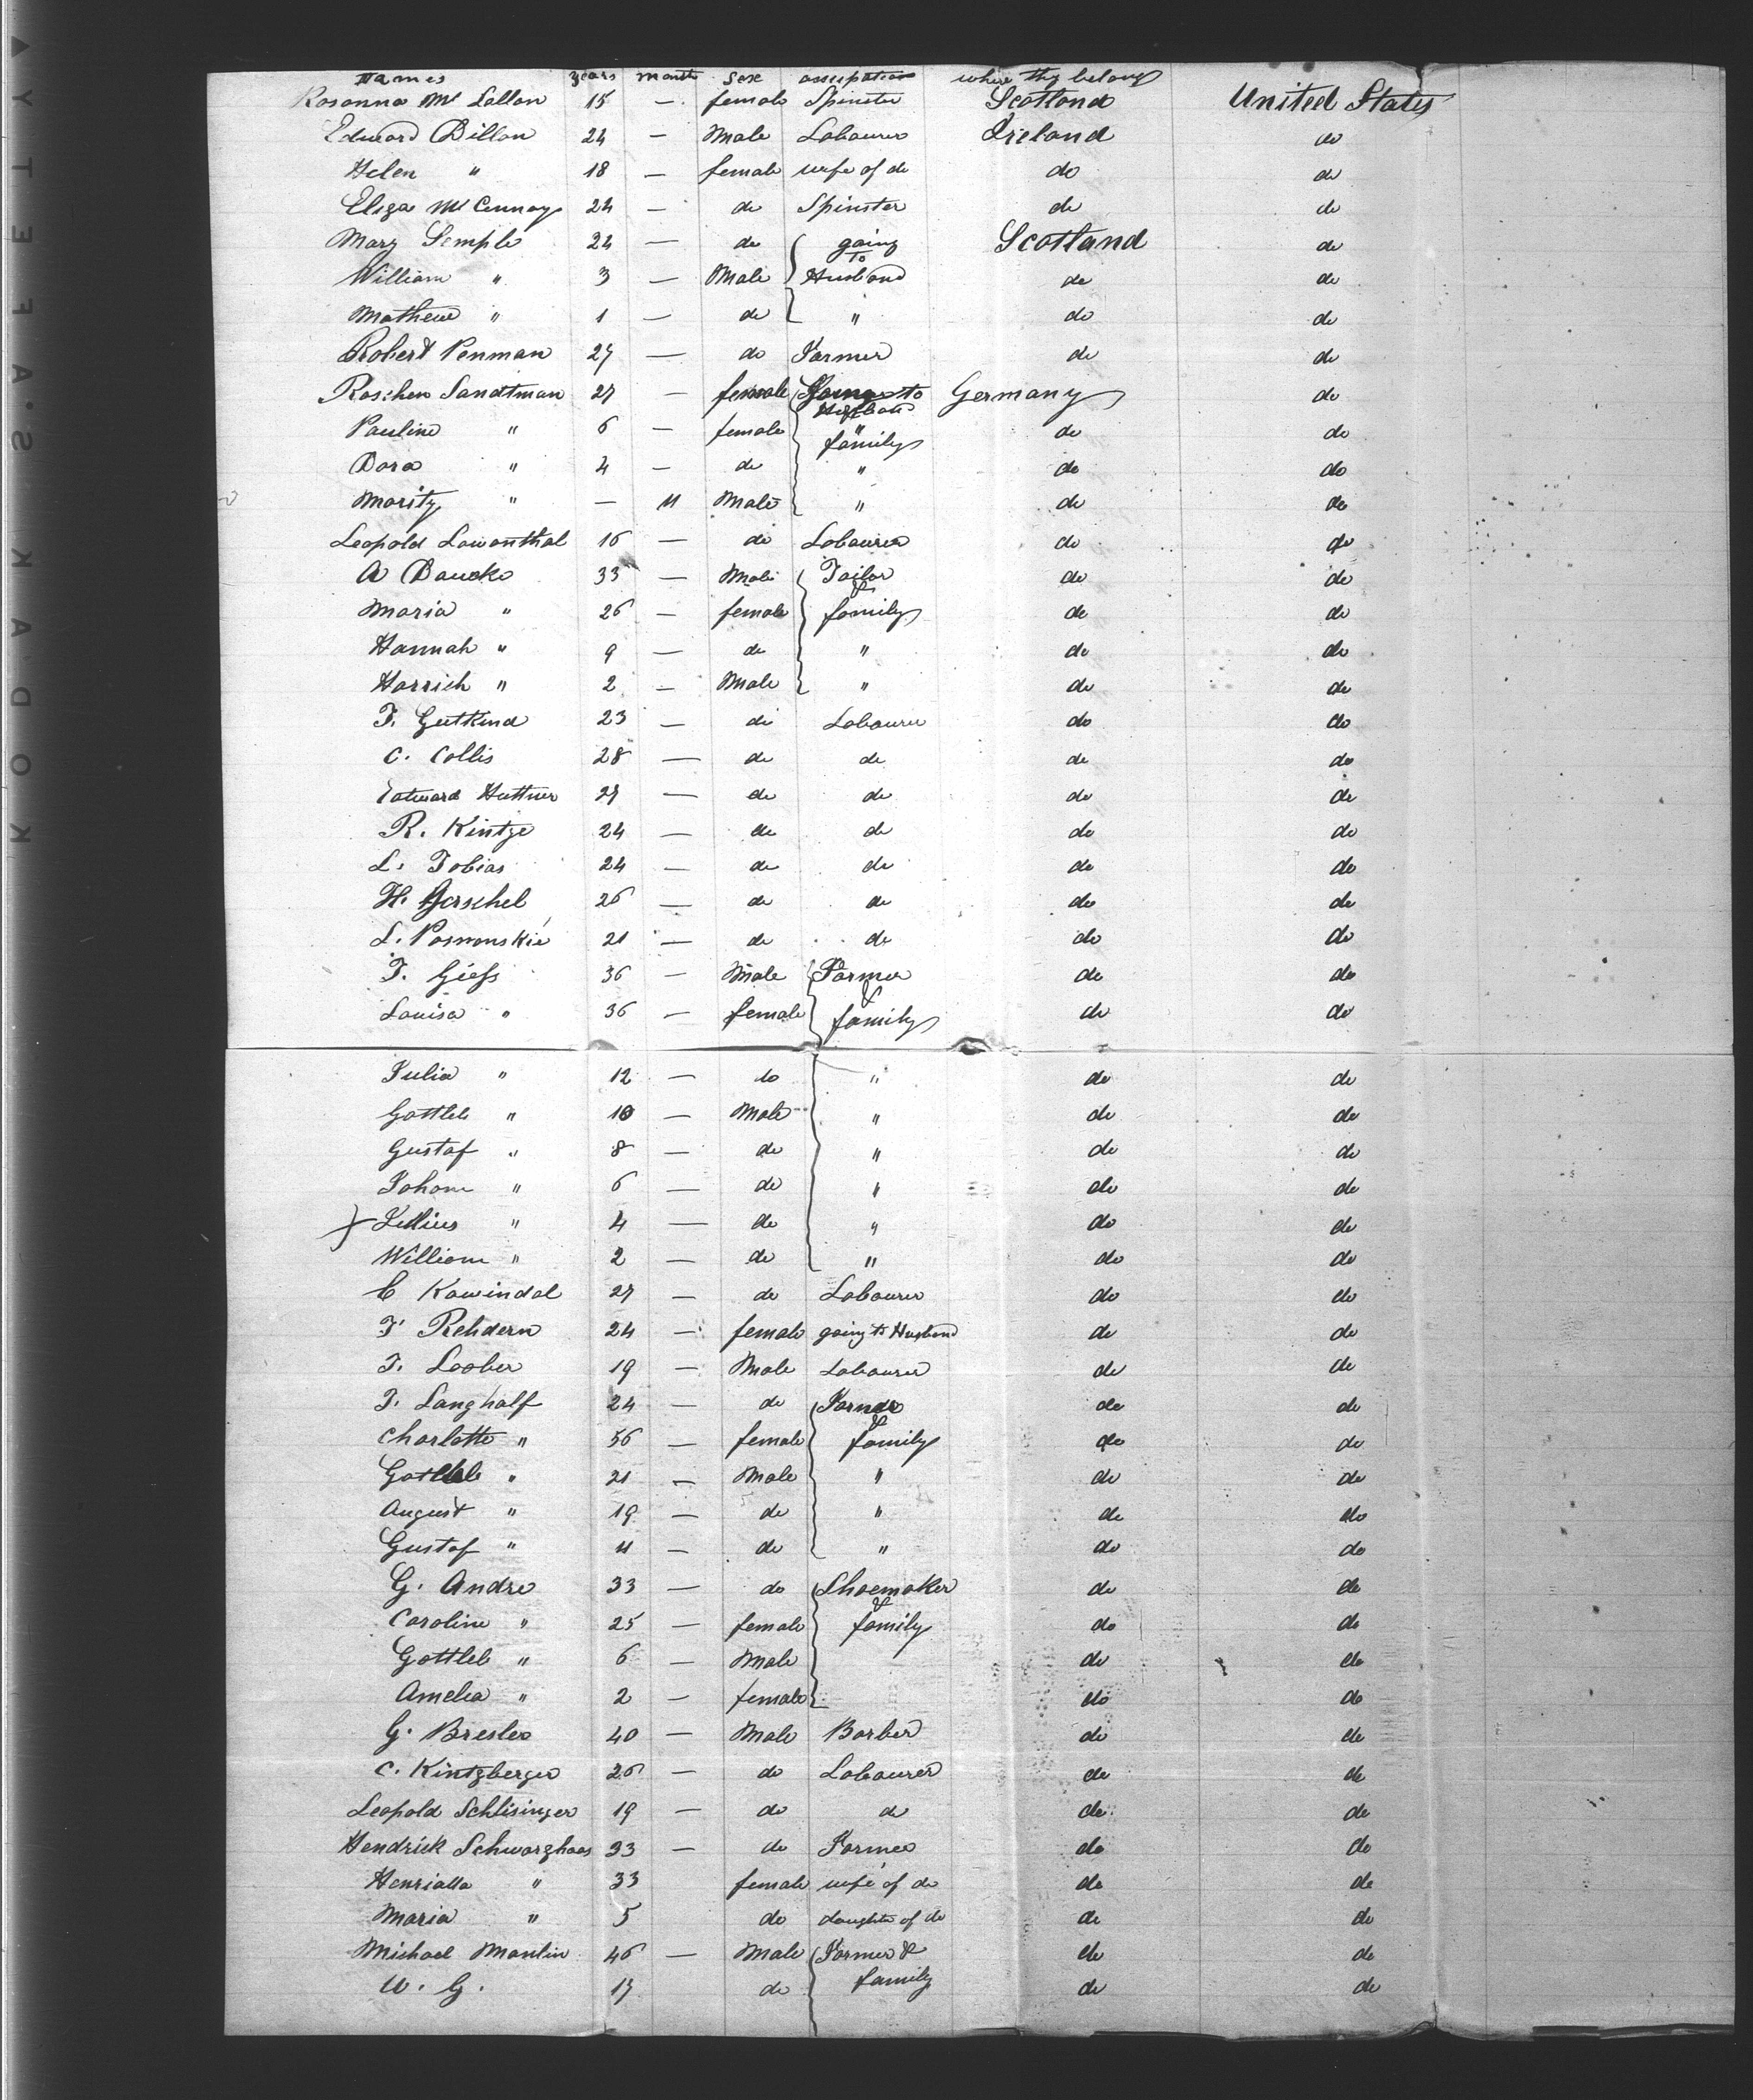 Names years month sex occupation where thy belong
Rosanna Mc Lallan 15 — female Spinster Scotland United States
Edward Dillon 24 — Male Labourer Ireland do
Helen " 18 — female wife of do do do
Eliza Mc Cennay 24 — do Spinster do do
Mary Semple 24 — do going to Scotland do
William " 3 — Male Husband do do
Mathew " 1 — do " do do
Robert Penman 27 — do Farmer do do
Roschen Sandtman 27 — female Going to Husband Germany do
Pauline " 6 — female " family do do
Dora " 4 — do " do do
Moritz " — 11 Male " do do
Leopold Lowenthal 16 — do Labourer do do
A Baucke 33 — Male Tailor & do do
Maria " 26 — female family do do
Hannah " 9 — do " do do
Harrich " 2 — Male " do do
F. Gutkind 23 — do Labourer do do
C. Collis 28 — do do do do
Edward Huttner 27 — do do do do
R. Kintze 24 — do do do do
L. Tobias 24 — do do do do
H. Herschel 26 — do do do do
L. Posnonskie 21 — do do do do
F. Giess 36 — Male Farmer & do do
Louisa " 36 — female family do do
Julia " 12 — do " do do
Gottleb " 10 — Male " do do
Gustaf " 8 — do " do do
Johan " 6 — do " do do
Jullius " 4 — do " do do
William " 2 — do " do do
C Kawindal 27 — do Labourer do do
F Rehdern 24 — female going to Husband do do
F. Loober 19 — Male Labourer do do
F. Langhalf 24 — do Farmer & do do
Charlotte " 56 — female family do do
Gottleb " 21 — Male " do do
August " 19 — do " do do
Gustaf " 11 — do " do do
G. Andre 33 — do Shoemaker & do do
Caroline " 25 — female family do do
Gottleb " 6 — Male do do
Amelia " 2 — female do do
G. Bresler 40 — Male Barber do do
C. Kintzberger 26 — do Labourer do do
Leopold Schlisinger 19 — do do do do
Hendrick Schwarzhaas 33 — do Farmer do do
Henrialla " 33 female wife of do do do
Maria " 5 do daughter of do do do
Michael Manlin 46 — Male Farmer & do do
W. G. 17 do family do do
KODAK·SAFETY